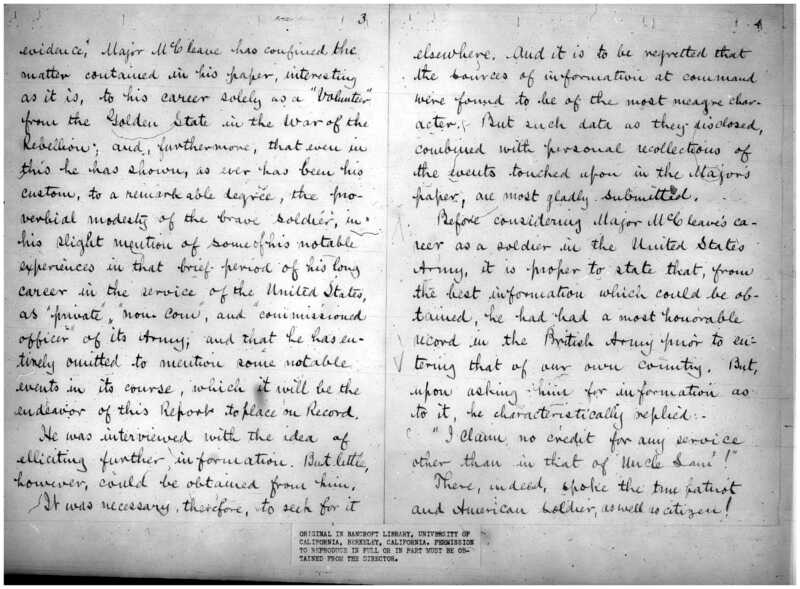 3
evidence," Major McCleave has confined the
matter contained in his paper, interesting
as it is, to his career solely as a "Volunter"
from the Golden State in the War of the
Rebellion; and, furthermore, that even in
this he has shown, as ever has been his
custom, to a remarkable degree, the pro-
verbial modesty of the brave soldier, in
his slight mention of some of his notable
experiences in that brief period of his long
career in the service of the United States,
as "private", "non com", and "commissioned
officer" of its Army; and that he has en-
tirely omitted to mention some notable
events in its course, which it will be the
endeavor of this Report to place on Record.
He was interviewed with the idea of
elliciting further information. But little,
however, could be obtained from him.
It was necessary, therefore, to seek for it
4
elsewhere. And it is to be regretted that
the sources of information at command
were found to be of the most meagre char-
acter. But such data as they disclosed,
combined with personal recollections of
the events touched upon in the Major's
paper, are most gladly submitted.
Before considering Major McCleave's ca-
reer as a soldier in the United States
Army, it is proper to state that, from
the best information which could be ob-
tained, he had had a most honorable
record in the British Army prior to en-
tering that of our own country. But,
upon asking him for information as
to it, he characteristically replied:-
"I claim no credit for any service
other than in that of 'Uncle Sam'!"
There, indeed, spoke the true patriot
and American soldier, as well as citizen!
ORIGINAL IN BANCROFT LIBRARY, UNIVERSITY OF
CALIFORNIA, BERKELEY, CALIFORNIA. PERMISSION
TO REPRODUCE IN FULL OR IN PART MUST BE OB-
TAINED FROM THE DIRECTOR.